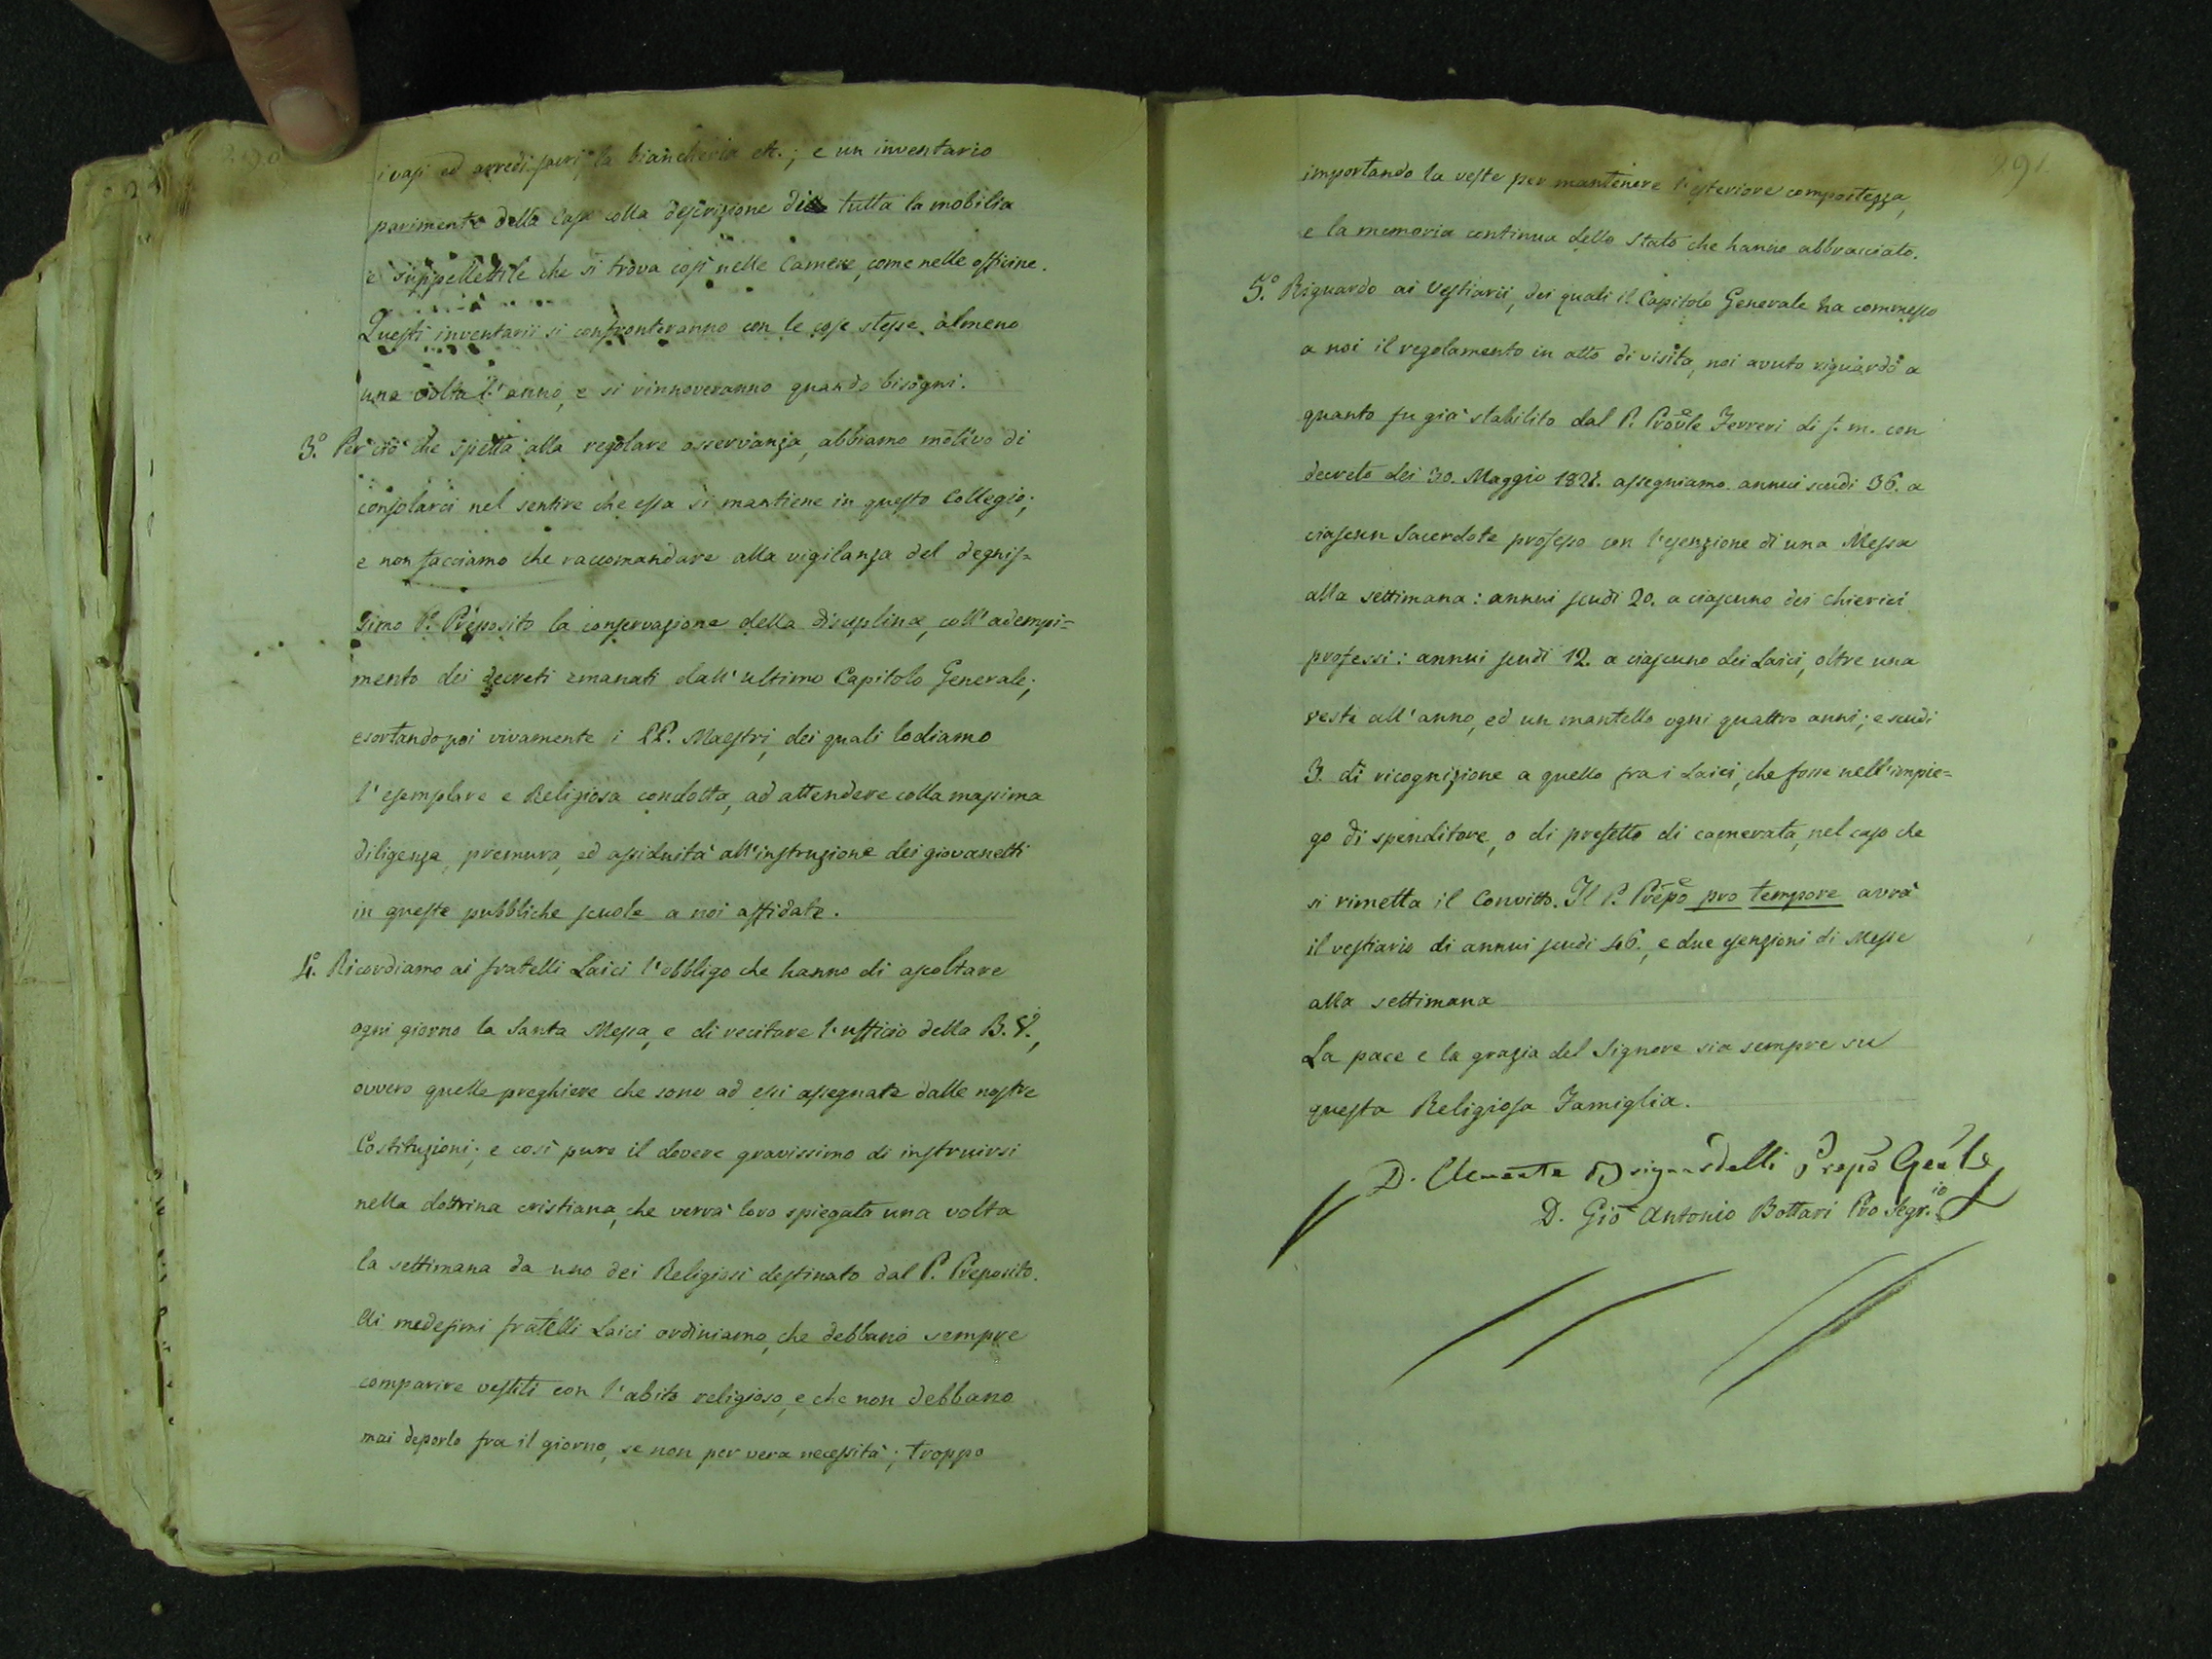 290
i vasi ed arredi sacri, la biancheria etc.; e un inventario
parimente della Casa colla descrizione di tutta la mobilia
e suppellettile che si trova così nelle Camere, come nelle officine.
Questi inventarii si confronteranno con le cose stesse almeno
una volta l'anno, e si rinnoveranno quando bisogni.
3.° Per ciò che spetta alla regolare osservanza, abbiamo motivo di
consolarci nel sentire che essa si mantiene in questo Collegio;
e non facciamo che raccomandare alla vigilanza del degnis=
simo P. Preposito la conservazione della disciplina, coll'adempi=
mento dei decreti emanati dall'ultimo Capitolo Generale;
esortando poi vivamente i PP. Maestri, dei quali lodiamo
l'esemplare e Religiosa condotta, ad attendere colla massima
diligenza, premura, ed assiduità all'instruzione dei giovanetti
in queste pubbliche scuole a noi affidate.
4.° Ricordiamo ai fratelli Laici l'obbligo che hanno di ascoltare
ogni giorno la Santa Messa, e di recitare l'ufficio della B. V.,
ovvero quelle preghiere che sono ad essi assegnate dalle nostre
Costituzioni; e così pure il dovere gravissimo di instruirsi
nella dottrina cristiana, che verrà loro spiegata una volta
la settimana da uno dei Religiosi destinato dal P. Preposito.
Ai medesimi fratelli Laici ordiniamo, che debbano sempre
comparire vestiti con l'abito religioso, e che non debbano
mai deporlo fra il giorno, se non per vera necessità; troppo
291
importando la veste per mantenere l'esteriore compostezza,
e la memoria continua dello stato che hanno abbracciato.
5.° Riguardo ai Vestiarii, dei quali il Capitolo Generale ha commesso
a noi il regolamento in atto di visita, noi avuto riguardo a
quanto fu già stabilito dal P. Prov̄le Ferreri di f. m. con
decreto dei 30. Maggio 1828. assegniamo annui scudi 36. a
ciascun Sacerdote professo con l'esenzione di una Messa
alla settimana: annui scudi 20. a ciascuno dei chierici
professi: annui scudi 12. a ciascuno dei Laici, oltre una
veste all'anno, ed un mantello ogni quattro anni; e scudi
3. di ricognizione a quello fra i Laici, che fosse nell'impie=
go di spenditore, o di prefetto di camerata, nel caso che
si rimetta il Convitto. Il P. Prep̄o pro tempore avrà
il vestiario di annui scudi 46., e due esenzioni di Messe
alla settimana
La pace e la grazia del Signore sia sempre su
questa Religiosa Famiglia.
D. Clemente Brignardelli Prep̄o Gen̄le
D. Gio Antonio Bottari Pro Segr.io